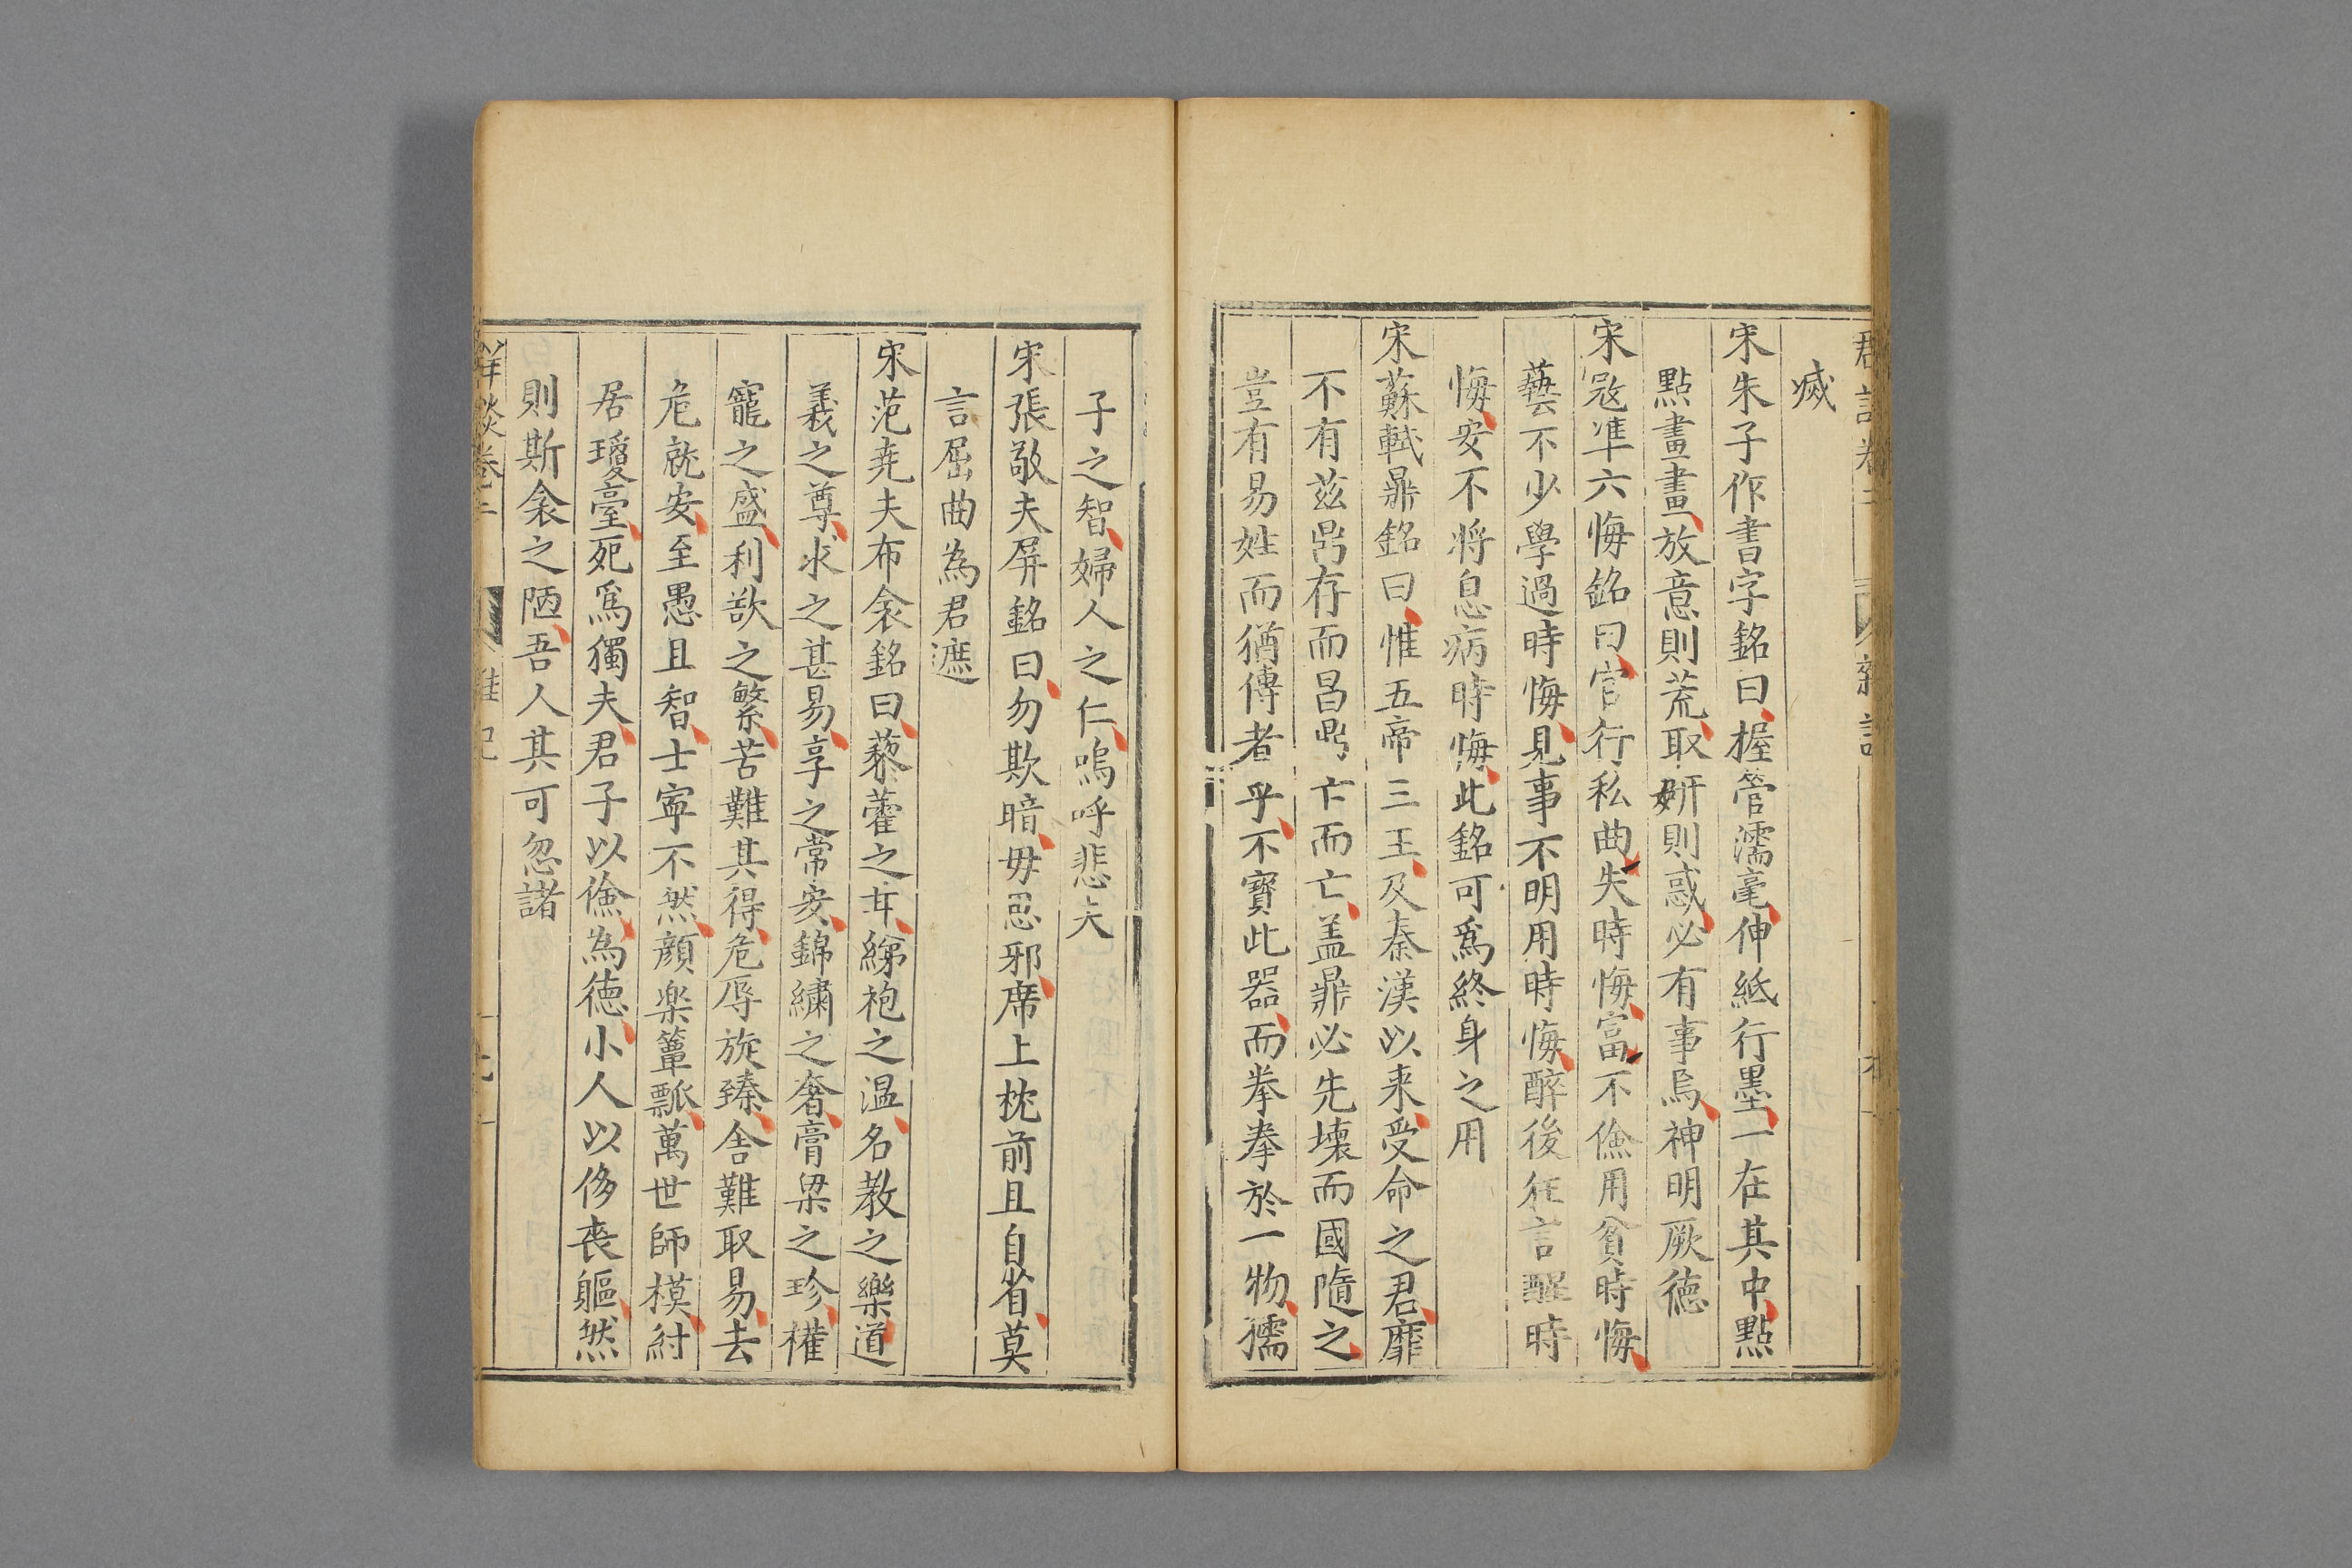 瘢
宋朱子作書字銘曰握管濡毫伸紙行墨一在其中點
點畫畫放意則荒取妍則惑必有事焉神明厥德
宋冦凖六悔銘曰官行私曲失時悔富不儉用貧時悔
藝不少學過時悔見事不明用時悔醉後狂言醒時
悔安不將息病時悔此銘可爲終身之用
宋蘇軾鼎銘曰惟五帝三王及秦漢以来受命之君靡
不有兹鼎存而昌鼎亡而亡盖鼎必先壊而國隨之
豈有易姓而猶傳者乎不寳此器而拳拳於一物孺
子之智婦人之仁嗚呼悲夫
宋張敬夫屏銘曰勿欺暗毋思邪席上枕前且自省莫
言屈曲為君遮
宋范尭夫布衾銘曰藜藿之甘綈袍之温名教之樂道
義之尊求之甚易享之常安錦繡之奢膏粱之珍權
寵之盛利欲之繁苦難其得危辱旋臻舎難取易去
危就安至愚且智士寜不然顔楽簞瓢萬世師模紂
居瓊臺死爲獨夫君子以儉為德小人以侈丧軀然
則斯衾之陋吾人其可忽諸
群談卷三 雜記